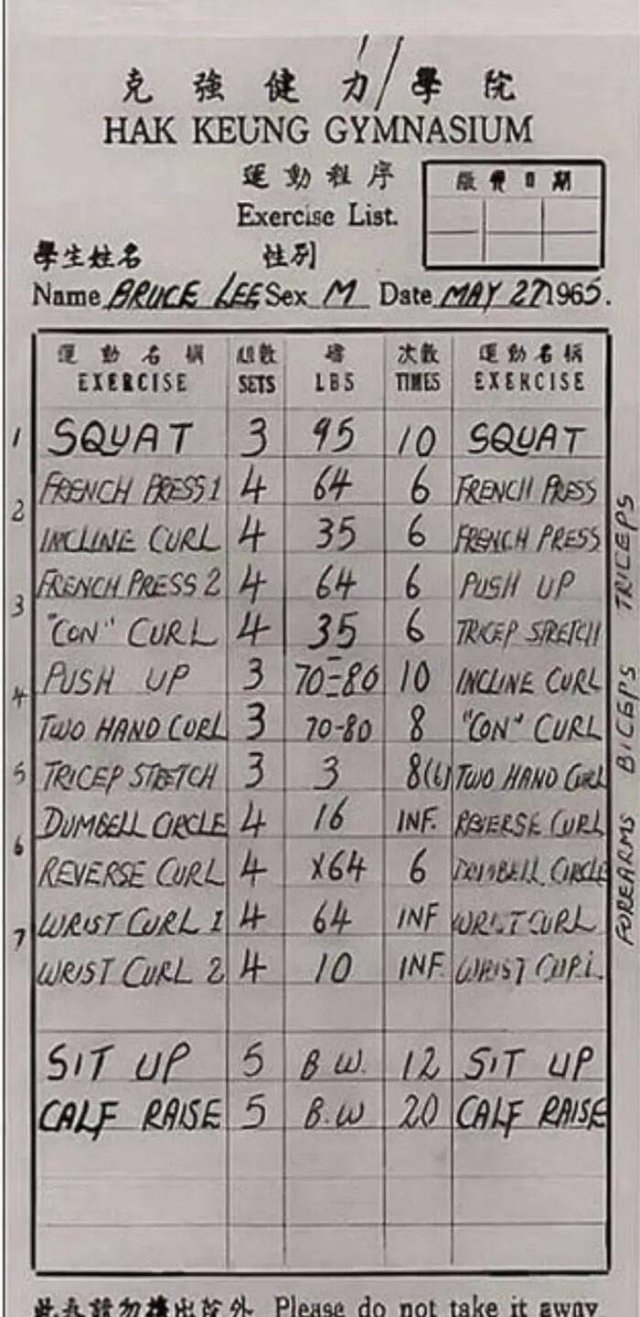 克強健力學院
HAK KEUNG GYMNASIUM
運動程序
繳費日期
Exercise List.
學生姓名 性別
Name BRUCE LEE Sex M Date MAY 27 1965.
運動名稱 組數 磅 次數 運動名稱
EXERCISE SETS LBS TIMES EXERCISE
1 SQUAT 3 95 10 SQUAT
FRENCH PRESS 1 4 64 6 FRENCH PRESS
2 INCLINE CURL 4 35 6 FRENCH PRESS
FRENCH PRESS 2 4 64 6 PUSH UP
3 "CON" CURL 4 35 6 TRICEP STRETCH
PUSH UP 3 70-80 10 INCLINE CURL
4 TWO HAND CURL 3 70-80 8 "CON" CURL
5 TRICEP STRETCH 3 3 8(6) TWO HAND CURL
DUMBELL CIRCLE 4 16 INF. REVERSE CURL
6 REVERSE CURL 4 X64 6 DUMBELL CIRCLE
7 WRIST CURL 1 4 64 INF WRIST CURL
WRIST CURL 2 4 10 INF WRIST CURL
SIT UP 5 B.W. 12 SIT UP
CALF RAISE 5 B.W 20 CALF RAISE
TRICEPS
BICEPS
FOREARMS
勿攜出院外 Please do not take it away